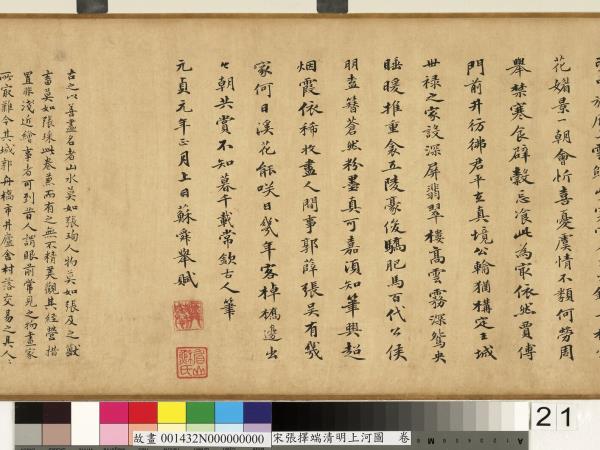 花媚景一朝會忻喜憂虞情不類何勞周
舉禁寒食辟穀忘飡此為最依然賈傅
門前井彷彿君平玄真境公輪猶構定王城
世祿之家設深屏翡翠樓高雲霧深鴛央
睡暖推重衾五陵豪俊驕肥馬百代公侯
朋盍簪蒼然粉墨真可嘉須知筆興超
烟霞依稀收盡人間事郭薛張吳有幾
家何日溪花能咲日幾年客棹橋邊出
朝共賞不知暮千載常欽古人筆
元貞元年正月上日蘇舜舉賦
古之以善畫名者山水莫如張珣人物莫如張及之獸
畜莫如張璪此卷蕙而有之無不精美觀其經營措
置非淺近繪事者可到昔人謂眼前常見之物畫家
所最難今其城郭舟橋市井廬舍村落交易之具人
眉山蘇氏
故畫 001432N000000000 宋張擇端清明上河圖 卷
21